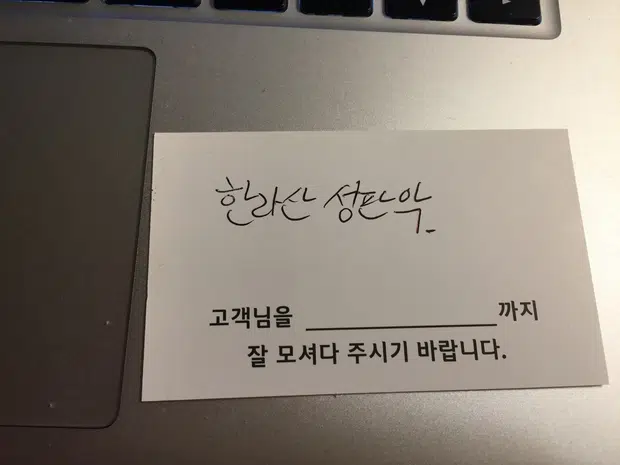 한라산 성판악.
고객님을 ____________ 까지
잘 모셔다 주시기 바랍니다.